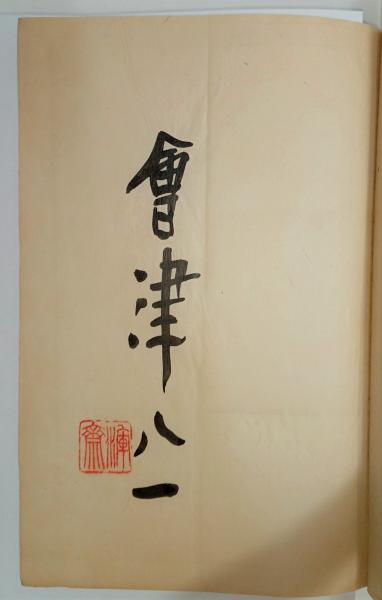 會津八一
渾齋